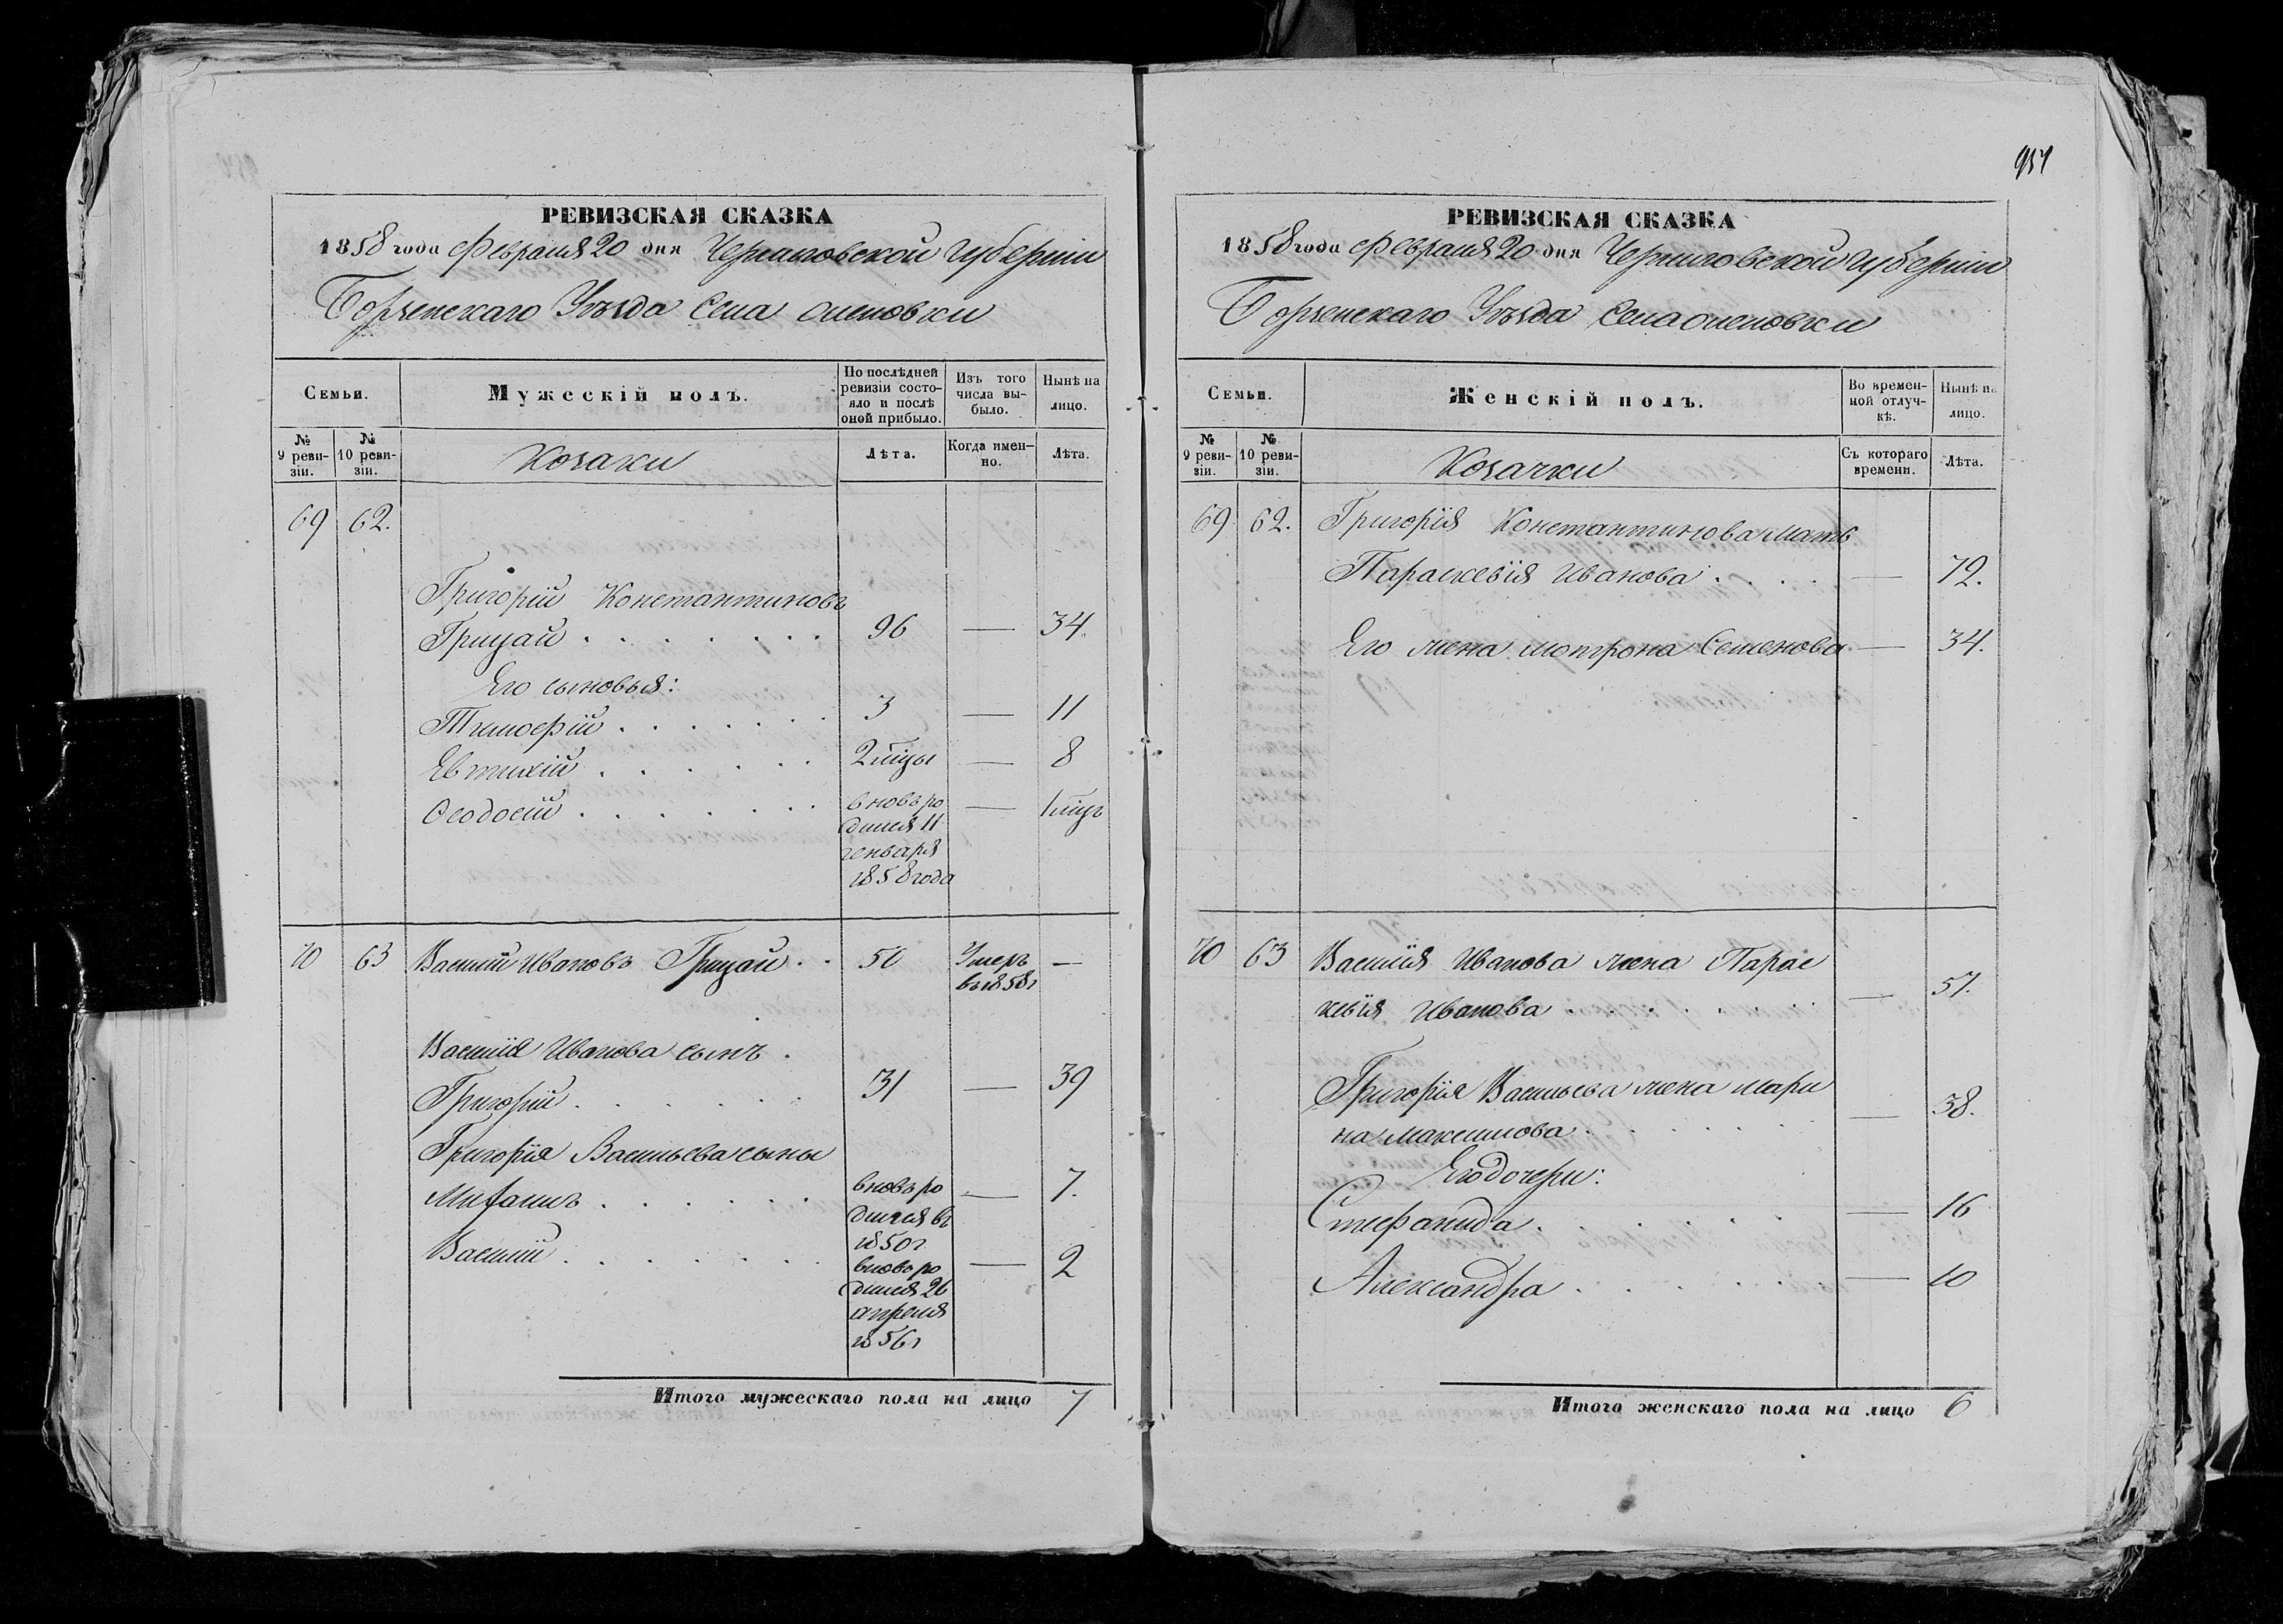 РЕВИЗСКАЯ СКАЗКА
1858 года Февраля 20 дня Черниговской Губерніи
Борзенскаго Уѣзда Села Оленовки
Семьи.
Мужескій полъ.
По послѣдней ревизіи состояло и послѣ оной прибыло.
Изъ того числа выбыло.
Нынѣ на лицо.
№ 9 ревизіи.
№ 10 ревизіи.
Козаки
Лѣта.
Когда именно.
Лѣта.
69 62.
Григорій Константиновъ
Грицай . . . . . . . 96 — 34.
Его сыновья:
Тимофій . . . . . . 3 — 11
Евтихій . . . . . . 2 мѣцы — 8
Ѳеодосій . . . . . . вновь ро — 1 мѣцъ
дился 11
генваря
1858 года
70 63 Василій Ивановъ Грицай . . 50 Умеръ —
въ 1858 г
Василія Иванова сынъ .
Григорій . . . . . . 31 — 39
Григорія Васильева сыны
Митрофанъ . . . . . . вновь ро — 7.
дился въ
1850 г
Василій . . . . . . вновь ро — 2
дился 26
апреля
1856 г
Итого мужескаго пола на лицо 7
951
РЕВИЗСКАЯ СКАЗКА
1858 года Февраля 20 дня Черниговской Губерніи
Борзенскаго Уѣзда Села Оленовки
Семьи.
Женскій полъ.
Во временной отлучкѣ.
Нынѣ на лицо.
№ 9 ревизіи.
№ 10 ревизіи.
Козачки
Съ котораго времени.
Лѣта.
69 62. Григорія Константинова мать
Параскевія Иванова . . . . — 72.
Его жена Мотрона Семенова — 34.
70 63 Василія Иванова жена Парас
кевія Иванова . . . . . . — 57.
Григорія Васильева жена Мари
на Максимова . . . . . . — 38.
Его дочери:
Стефанида . . . . . . — 16
Александра . . . . . . — 10
Итого женскаго пола на лицо 6